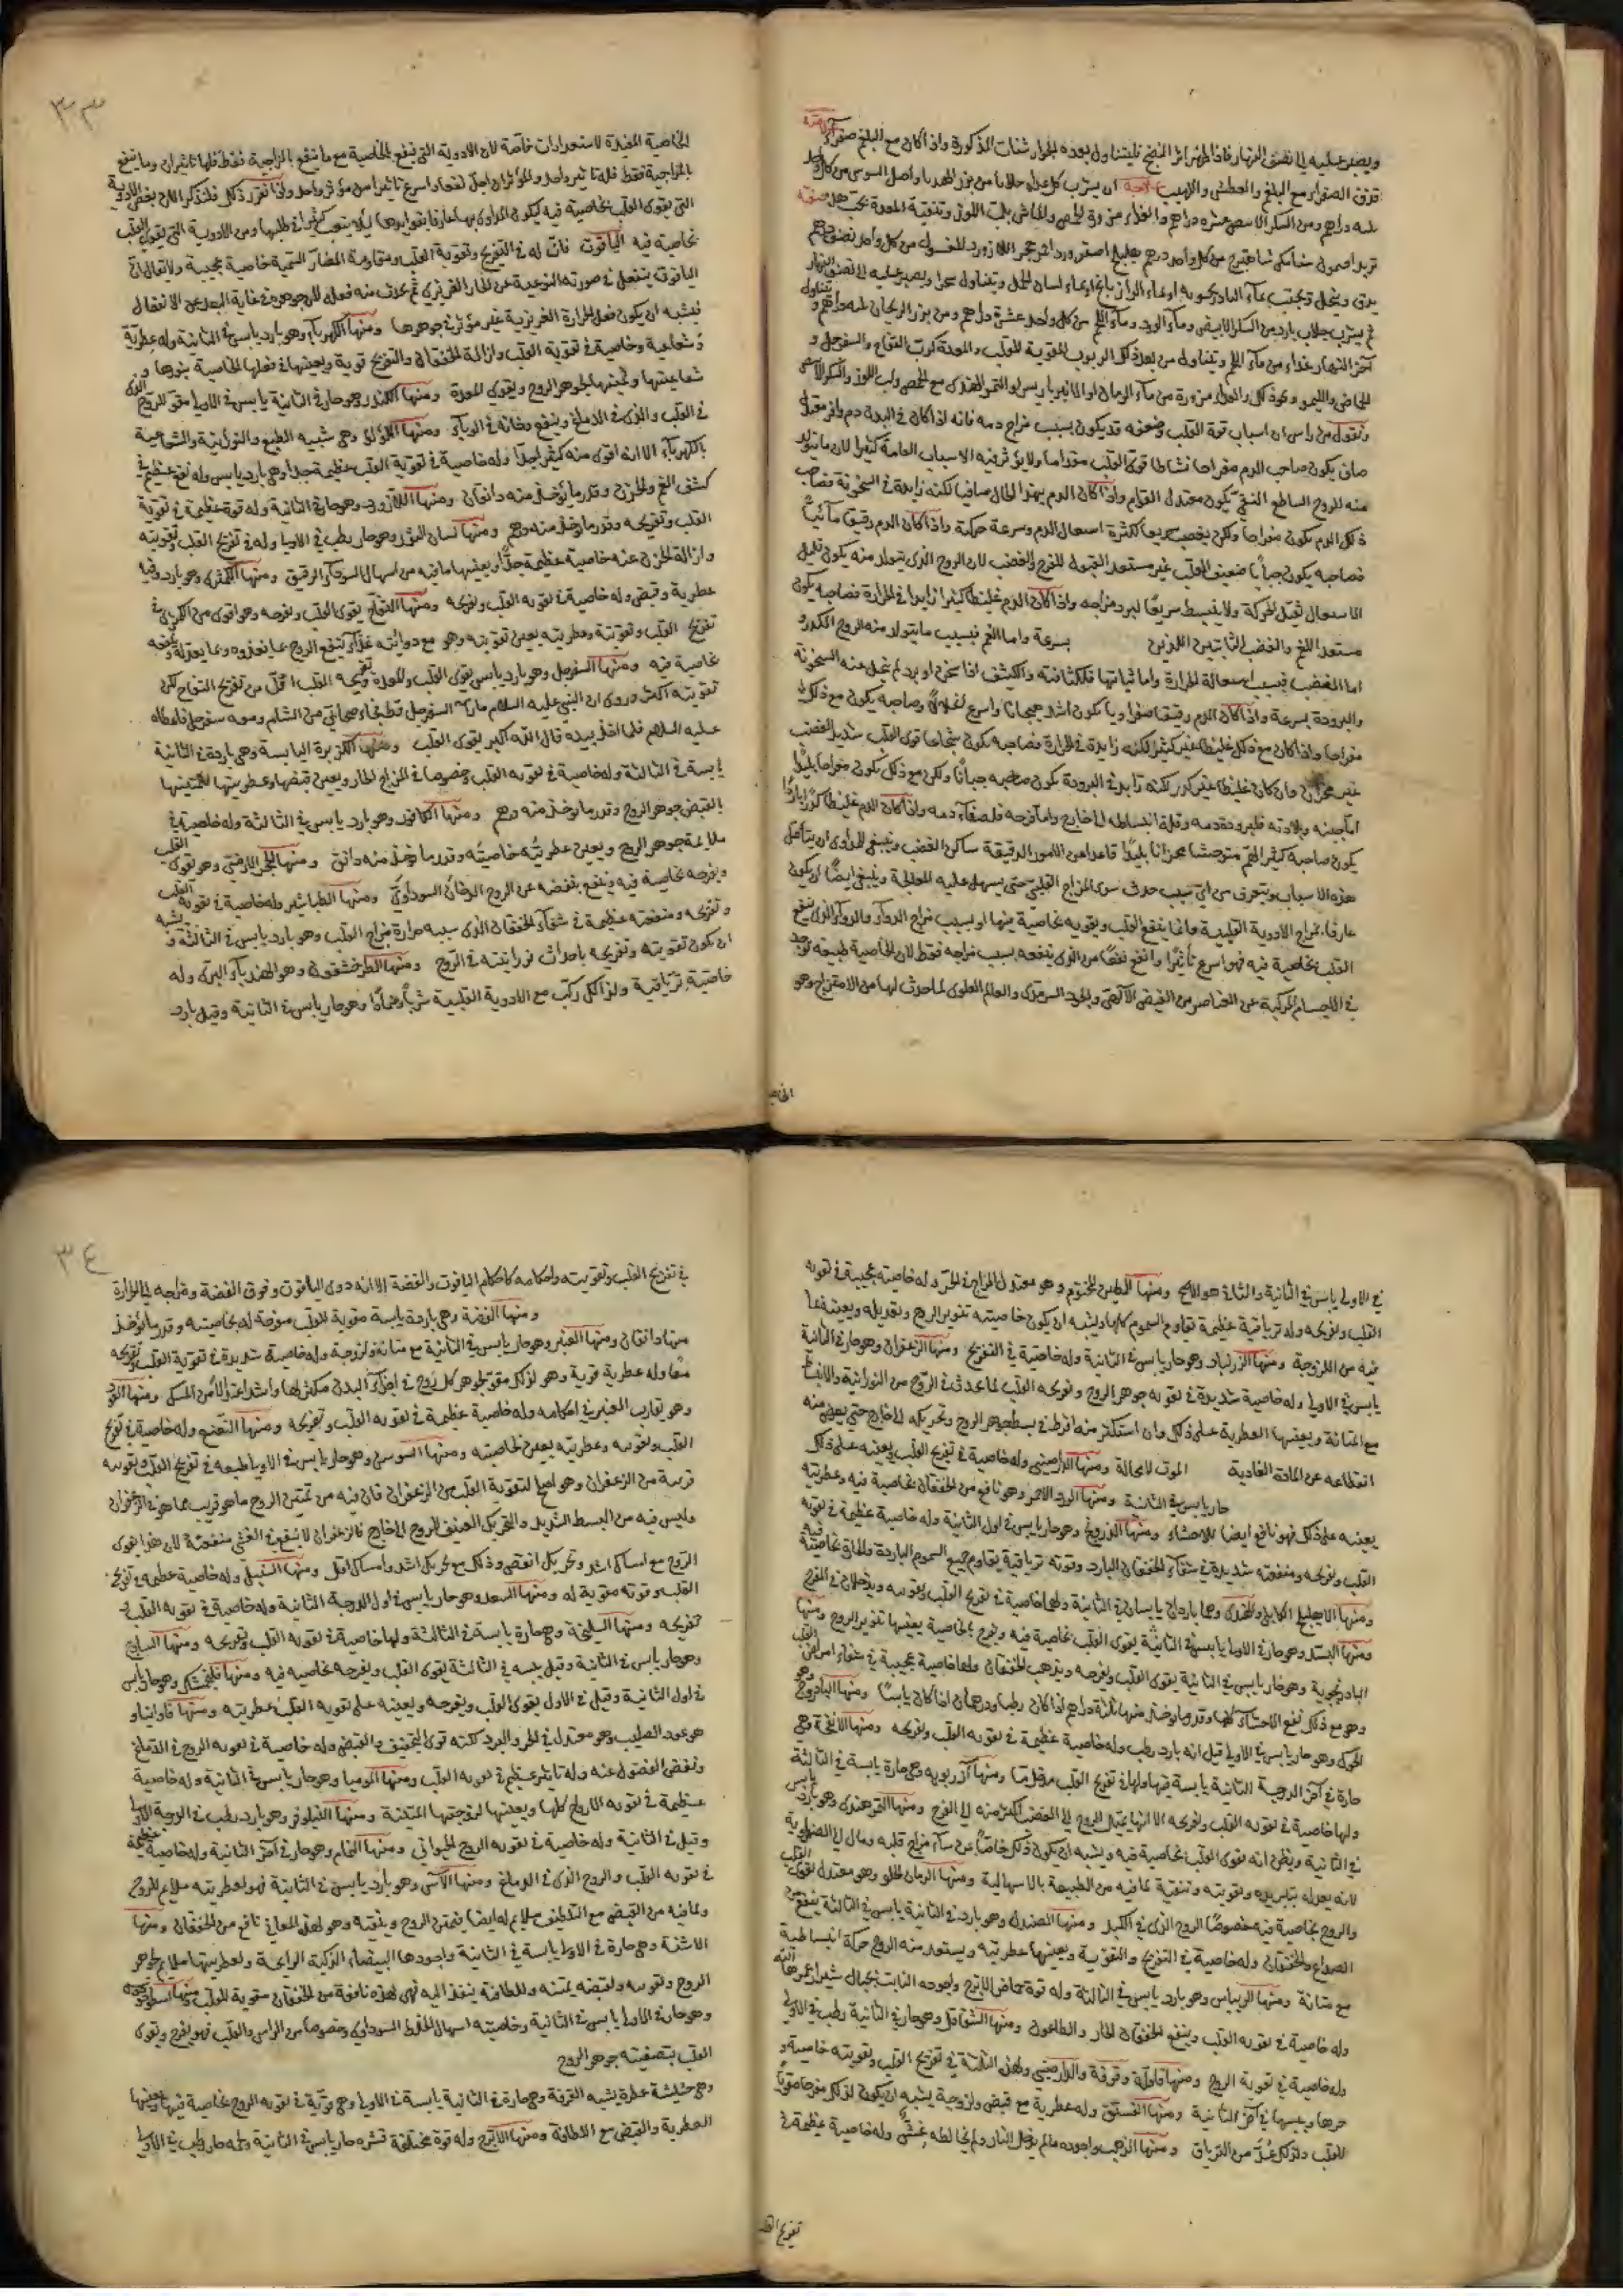 ويصبر عليه الى نصف النهار فاذا ظهر اثر النضج فليتناول بعده الجوارشنات المذكورة واذا كان مع البلغم صفراء
فوق الصفراء مع البلغم والعطش واللهيب علاجه ان يشرب كل غداة جلابا من بزر الهندبا واصل السوس من كل واحد
ثم يشرب جلاب بارد من السكر الابيض وماء الورد وماء من كل واحد عشرة دراهم ومن بزر الريحان
ونقول من راس ان اسباب قوة القلب وضعفه قد يكون بسبب مزاج دمه فانه اذا كان في البدن دم وافر معتدل
صاف يكون صاحب الدم مفراحا نشاطا قوى القلب مقداما ولا يؤثر فيه الاسباب الغامة كثيرا لان ما يتولد
منه الروح الساطع النقي يكون معتدل القوام واذا كان الدم بهذا الحال صافيا لكنه زايدة في السخونة فصاحب
ذلك الدم يكون مفراحا ولكن يغضب سريعا لكثرة اشتعال الدم وسرعة حركته واذا كان الدم رقيقا مائيا
فصاحبه يكون جبانا ضعيف القلب غير مستعد القبول للفرح والغضب لان الروح الذي يتولد منه يكون قليل
الاشتعال ثقيل الحركة ولا ينبسط سريعا لبرد مزاجه واذا كان الدم غليظا كثيرا زايدا في الحرارة فصاحبه يكون
مستعد الغم والغضب الثابتين اللذين بسرعة واما الغم فبسبب ما يتولد منه الروح الكدر و
اما الغضب فبسبب اشتعاله الحرارة واما ثباتها فلكثافته والكثيف اذا سخن او برد لم تحل عنه السخونة
والبرودة بسرعة واذا كان الدم رقيقا صفراويا يكون اشد هيجانا واسرع انحلالا وصاحبه يكون مع ذلك
مفراحا واذا كان مع ذلك غليظا غير كثير لكنه زايدة في الحرارة فصاحبه يكون شجاعا قوى القلب شديد الغضب
غير محزان وان كان غليظا غير كدر لكنه زايد في البرودة يكون صاحبه جبانا ولكن مع ذلك يكون مفراحا بليدا
اما جبنه وبلادته فلبرودة دمه وقلة انبساطه الى الخارج واما فرحه فلصفاء دمه واذا كان الدم غليظا كدرا باردا
يكون صاحبه كثير الهم متوحشا محزانا بليدا قاعدا من الامور الدقيقة ساكن الغضب وينبغي للمداوي ان يتأمل
هذه الاسباب ويتعرف من اي سبب حدث سوء المزاج القلبي حتى يسهل عليه المعالجة وينبغي ايضا ان يكون
عارفا بمزاج الادوية القلبية وانما ينفع القلب ويقويه بخاصية فيها او بسبب مزاج الدواء والدواء الذي ينفع
القلب بخاصية فيه فهو اسرع تأثيرا وانفع نفعا من الذي ينفعه بسبب مزاجه فقط لان الخاصية طبيعة توجد
في الاجسام المركبة عن العناصر من الفيض الالهي والجود السرمدي والعالم العلوي لما حدث لها من الامتزاج وهو
الخاصية
٣٣
الخاصية المفيدة لاستعدادات خاصة لان الادوية التي ينفع بالخاصية مع ما ينفع بالمزاجية فقط فلها تاثيران وما ينفع
بالمزاجية فقط فله تاثير واحد والمؤثران اجل نفعا واسرع تاثيرا من مؤثر واحد واذا تقرر ذلك فلنذكر الان بعض الادوية
التي يقوى القلب بخاصية فيه ليكون المداوى بها عارفا بقواها ليلا يتعب كثيرا في طلبها ومن الادوية التي يقوى القلب
بخاصية فيه الياقوت فان له في التفريح وتقوية القلب ومقاومة المضار السمية خاصية عجيبة ولا يقال ان
الياقوت ينفعل في صورته النوعية عن الحار الغريزي ثم يحدث منه فعل لان جوهره في غاية البعد من الانفعال
فيشبه ان يكون فعل الحرارة الغريزية غير مؤثر في جوهرها ومنها الكهرباء وهو بارد يابس في الثانية وله عطرية
وشعاعية وخاصية في تقوية القلب وازالة الخفقان والتفريح قوية ويعينها في فعلها الخاصية بنورها و
شعاعيتها وتمتينها لجوهر الروح ويقوى المعدة ومنها الكندر وهو حار في الثانية يابس في الاولى مقو للروح الذي
في القلب والذي في الدماغ وينفع دخانه في الوباء ومنها اللؤلؤ وهي شبيه الطبع والنورانية والشعاعية
بالكهرباء الا انه اقوى منه كثيرا جدا وله خاصية في تقوية القلب عظيمة جدا وهي بارد يابس وله نفع عظيم في
كشف الغم والحزن وقدر ما يؤخذ منه دانقان ومنها اللازورد وهو حار في الثانية وله قوة عظيمة في تقوية
القلب وتفريحه وقدر ما يؤخذ منه درهم ومنها لسان الثور وهو حار رطب في الاولى وله في تفريح القلب وتقويته
وازالة الحزن عنه خاصية عظيمة جدا ويعينها ما فيه من اسهال السوداء الرقيق ومنها الكمثرى وهو بارد وفيه
عطرية وقبض وله خاصية في تقوية القلب وتفريحه ومنها التفاح يقوى القلب ويفرحه وهو اقوى من الكمثرى في
تفريح القلب وتقويته وعطريته يعين تقويته وهو مع دوائيته غذاء لينفع الروح بما يغذوه وبما يعدله وينفعه
بخاصية فيه ومنها السفرجل وهو بارد يابس يقوى القلب والمعدة وتفريحه القلب اقل من تفريح التفاح لكن
تقويته اكثر وروى ان النبي عليه السلام ما راى السفرجل قط فجاء صحابي من الشام ومعه سفرجل فاعطاه
عليه السلام فلما اخذ بيده قال الله اكبر يقوى القلب ومنها الكزبرة اليابسة وهي باردة في الثانية
يابسة في الثالثة وله خاصية في تقوية القلب خصوصا في المزاج الحار ويعين قبضها وعطريتها لتمتينها
بالقبض جوهر الروح وقدر ما يؤخذ منه درهم ومنها الكافور وهو بارد يابس في الثالثة وله خاصية في
ملايمة جوهر الروح ويعين عطريته خاصيته وقدر ما يؤخذ منه دانق ومنها الحجر الارمني وهو يقوى القلب
ويفرحه بخاصية فيه وينفع بنفضه عن الروح الدخان السوداوي ومنها الطباشير وله خاصية في تقوية القلب
وتفريحه ومنفعته عظيمة في شفاء الخفقان الذي سببه حرارة مزاج القلب وهو بارد يابس في الثالثة ويشبه
ان يكون تقويته وتفريحه باحداث نورانيته في الروح ومنها الطرخشقون وهو الهندباء البري وله
خاصية ترياقية ولذلك ركب مع الادوية القلبية شربا وضمادا وهو حار يابس في الثانية وقيل بارد
في الاولى يابس في الثانية والثاني هو الاصح ومنها الطين المختوم وهو معتدل المزاج في الحر وله خاصية عجيبة في تقوية
القلب وتفريحه وله ترياقية عظيمة تقاوم السموم كلها ويشبه ان يكون خاصيته تنوير الروح وتعديله ويعينه بما
فيه من اللزوجة ومنها الزرنباد وهو حار يابس في الثانية وله خاصية في التفريح ومنها الزعفران وهو حار في الثانية
يابس في الاولى وله خاصية شديدة في تقوية جوهر الروح وتفريحه القلب لما يحدث في الروح من النورانية والانبساط
مع المتانة ويعينها العطرية على ذلك وان استكثر منه افرط في بسط جوهر الروح وتحريكه الى الخارج حتى يعرض منه
انقطاعه عن المادة الغاذية الموت لا محالة ومنها الدارصيني وله خاصية في تفريح القلب ويعينه على ذلك
حار يابس في الثانية ومنها الورد الاحمر وهو نافع من الخفقان بخاصية فيه وعطريته
يعينه على ذلك فهو نافع ايضا للاحشاء ومنها الدرونج وهو حار يابس في اول الثانية وله خاصية عظيمة في تقوية
القلب وتفريحه ومنفعته شديدة في شفاء الخفقان البارد وقوته ترياقية يقاوم جميع السموم الباردة والحارة بخاصية فيه
ومنها الاهليلج الكابلي والهندي وهما باردان يابسان في الثانية ولهما خاصية في تفريح القلب وتقويته ويدخلان في المفرح
ومنها البسد وهو حار في الاولى يابس في الثانية يقوى القلب بخاصية فيه ويفرح بالخاصية يعينها تنوير الروح ومنها
البادرنجوية وهو حار يابس في الثانية يقوى القلب ويفرحه ويذهب الخفقان ولها خاصية عجيبة في شفاء امراض القلب
وهو مع ذلك ينفع الاحشاء كلها وقدر ما يؤخذ منها ثلاثة دراهم اذا كان رطبا ودرهمان اذا كان يابسا ومنها الباذروج وهو
الحوك وهو حار يابس في الاولى قيل انه بارد رطب وله خاصية عظيمة في تقوية القلب وتفريحه ومنها الانفحة وهي
حارة في آخر الدرجة الثانية يابسة فيها ولها في تفريح القلب مدخل ما ومنها آزريونه وهي حارة يابسة في الثالثة
ولها خاصية في تقوية القلب وتفريحه الا انها يميل الروح الى الغضب اكثر منه الى الفرح ومنها التمر هندي وهو بارد يابس
في الثانية ويظن انه يقوى القلب بخاصية فيه ويشبه ان يكون ذلك خاصا بمن ساء مزاج قلبه ومال الى الصفراوية
لانه يعدله بتبريده وتقويته وتنقية لما فيه من الطبيعة بالاسهالية ومنها الرمان الحلو وهو معتدل يقوى القلب
والروح بخاصية فيه خصوصا الروح الذي في الكبد ومنها الصندل وهو بارد في الثانية يابس في الثالثة ينفع من
الصداع والخفقان وله خاصية في التفريح والتقوية ويعينها عطريته ويستعد منه الروح حركة انبساطية
مع متانة ومنها الريباس وهو بارد يابس في الثالثة وله قوة حماض الاترج واجوده النابت بجبال شيراز عمرها الله
وله خاصية في تقوية القلب وينفع الخفقان الحار والطاعون ومنها الشقاقل وهو حار في الثانية رطب في الاولى
وله خاصية في تقوية الروح ومنها قاقلة وقرفة والدارصيني ولهذه الثلاثة في تفريح القلب وتقويته خاصية و
حرها ويبسها في آخر الثانية ومنها الفستق وله عطرية مع قبض ولزوجة يشبه ان يكون لذلك مفرحا مقويا
للقلب ولذلك عد من الترياق ومنها الذهب واجوده ما لم يدخل النار ولم يخالطه بغش وله خاصية عظيمة في
تفريح القلب
٣٤
في تفريح القلب وتقويته واحكامه كاحكام الياقوت والفضة الا انه دون الياقوت وفوق الفضة ومزاجه الى الحرارة
ومنها الفضة وهي باردة يابسة مقوية للقلب مفرحة له بخاصيته وقدر ما يؤخذ
منها دانقان ومنها العنبر وهو حار يابس في الثانية مع متانة ولزوجة وله خاصية شديدة في تقوية القلب وتفريحه
معا وله عطرية قوية وهو لذلك مقو لجوهر كل روح في اجزاء البدن مكثر لها واشد اعتدالا من المسك ومنها العود
وهو يقارب العنبر في احكامه وله خاصية عظيمة في تقوية القلب وتفريحه ومنها النعنع وله خاصية في تفريح
القلب وتقويته وعطريته يعين لخاصيته ومنها السوسن وهو حار يابس في الاولى طبيعته في تفريح القلب وتقويته
قريبة من الزعفران وهو اصح لتقوية القلب من الزعفران فان فيه من تمتين الروح ما هو قريب مما هو في الزعفران
وليس فيه من البسط الشديد والتحريك العنيف للروح الى الخارج فالزعفران لا ينفع في الغشي منفعته لان هذا يقوى
الروح مع امساك اشد وتحريك انقص وذلك مع تحريك اشد وامساك اقل ومنها السنبل وله خاصية عظيمة في تفريح
القلب وقوته مقوية له ومنها السعد وهو حار يابس في اول الدرجة الثانية وله خاصية في تقوية القلب و
تفريحه ومنها السليخة وهي حارة يابسة في الثالثة ولها خاصية في تقوية القلب وتفريحه ومنها الساذج
وهو حار يابس في الثانية وقيل يبسه في الثالثة يقوى القلب ويفرحه بخاصية فيه ومنها فلنجمشك وهو حار يابس
في اول الثانية وقيل في الاول يقوى القلب ويفرحه ويعينه على تقوية القلب عطريته ومنها فاوانيا و
هو عود الصليب وهو معتدل في الحر والبرد لكنه قوى التجفيف والقبض وله خاصية في تقوية الروح في الدماغ
ونفض الفضول عنه وله تاثير عظيم في تقوية القلب ومنها الموميا وهو حار يابس في الثانية وله خاصية
عظيمة في تقوية الارواح كلها ويعينها لزوجتها المتينة ومنها النيلوفر وهو بارد رطب في الدرجة الاولى
وقيل في الثانية وله خاصية في تقوية الروح الحيواني ومنها النمام وهو حار في آخر الثانية وله خاصية عظيمة
في تقوية القلب والروح الذي في الدماغ ومنها الآس وهو بارد يابس في الثانية فهو لعطريته ملايم للروح
ولما فيه من القبض مع التلطيف ملايم له ايضا فيمتن الروح وينقيه وهو لهذه المعاني نافع من الخفقان ومنها
الاشنة وهي حارة في الاولى يابسة في الثانية واجودها البيضاء الزكية الرايحة ولعطريتها ملايم لجوهر
الروح وتقويه ولقبضه يمتنه وللطافة ينفذ اليه فهي لهذه نافعة من الخفقان مقوية للقلب ومنها اسطوخودس
وهو حار في الاولى يابس في الثانية وخاصيته اسهال الخلط السوداوي وخصوصا من الراس والقلب فهو يفرح ويقوى
القلب بتصفيته جوهر الروح
وهي حشيشة عطرة يشبه القرفة وهي حارة في الثانية يابسة في الاولى وهي قوية في تقوية الروح بخاصية فيها ويعينها
العطرية والقبض مع اللطافة ومنها الاترج وله قوة مختلفة قشره حار يابس في الثانية ولحمه حار رطب في الاولى